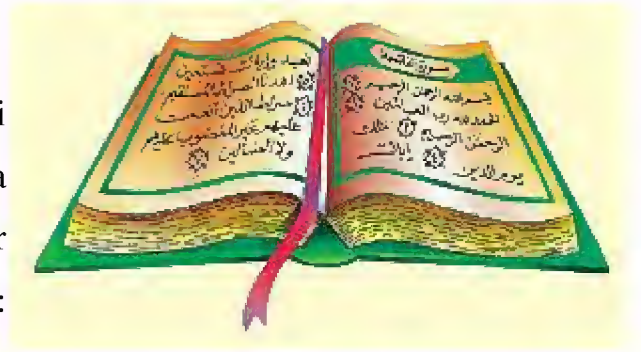 سورة الفاتحة
بسم الله الرحمن الرحيم
الحمد لله رب العالمين
الرحمن الرحيم مالك
يوم الدين إياك
نعبد وإياك نستعين
اهدنا الصراط المستقيم
صراط الذين أنعمت
عليهم غير المغضوب عليهم
ولا الضالين
i
a
r
: